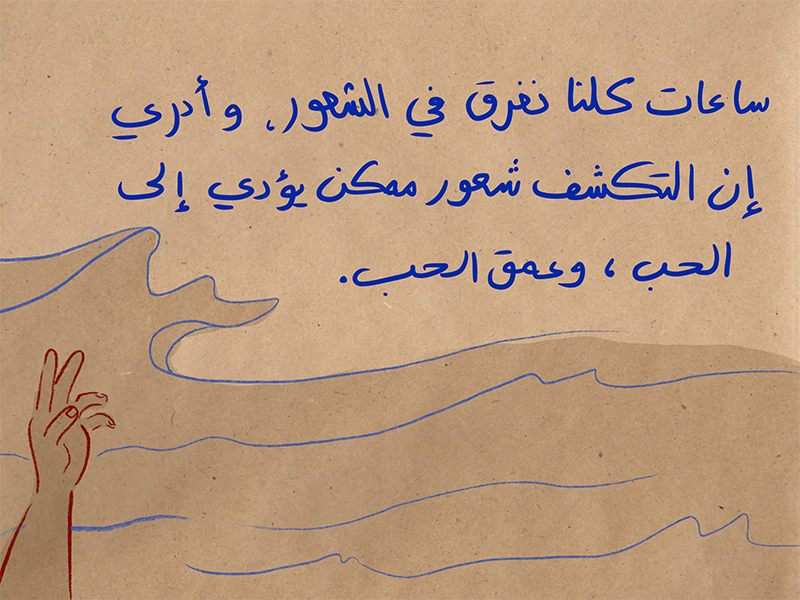 ساعات كلنا نغرق في الشعور، وأدري
إن التكشف شعور ممكن يؤدي إلى
الحب، وعمق الحب.